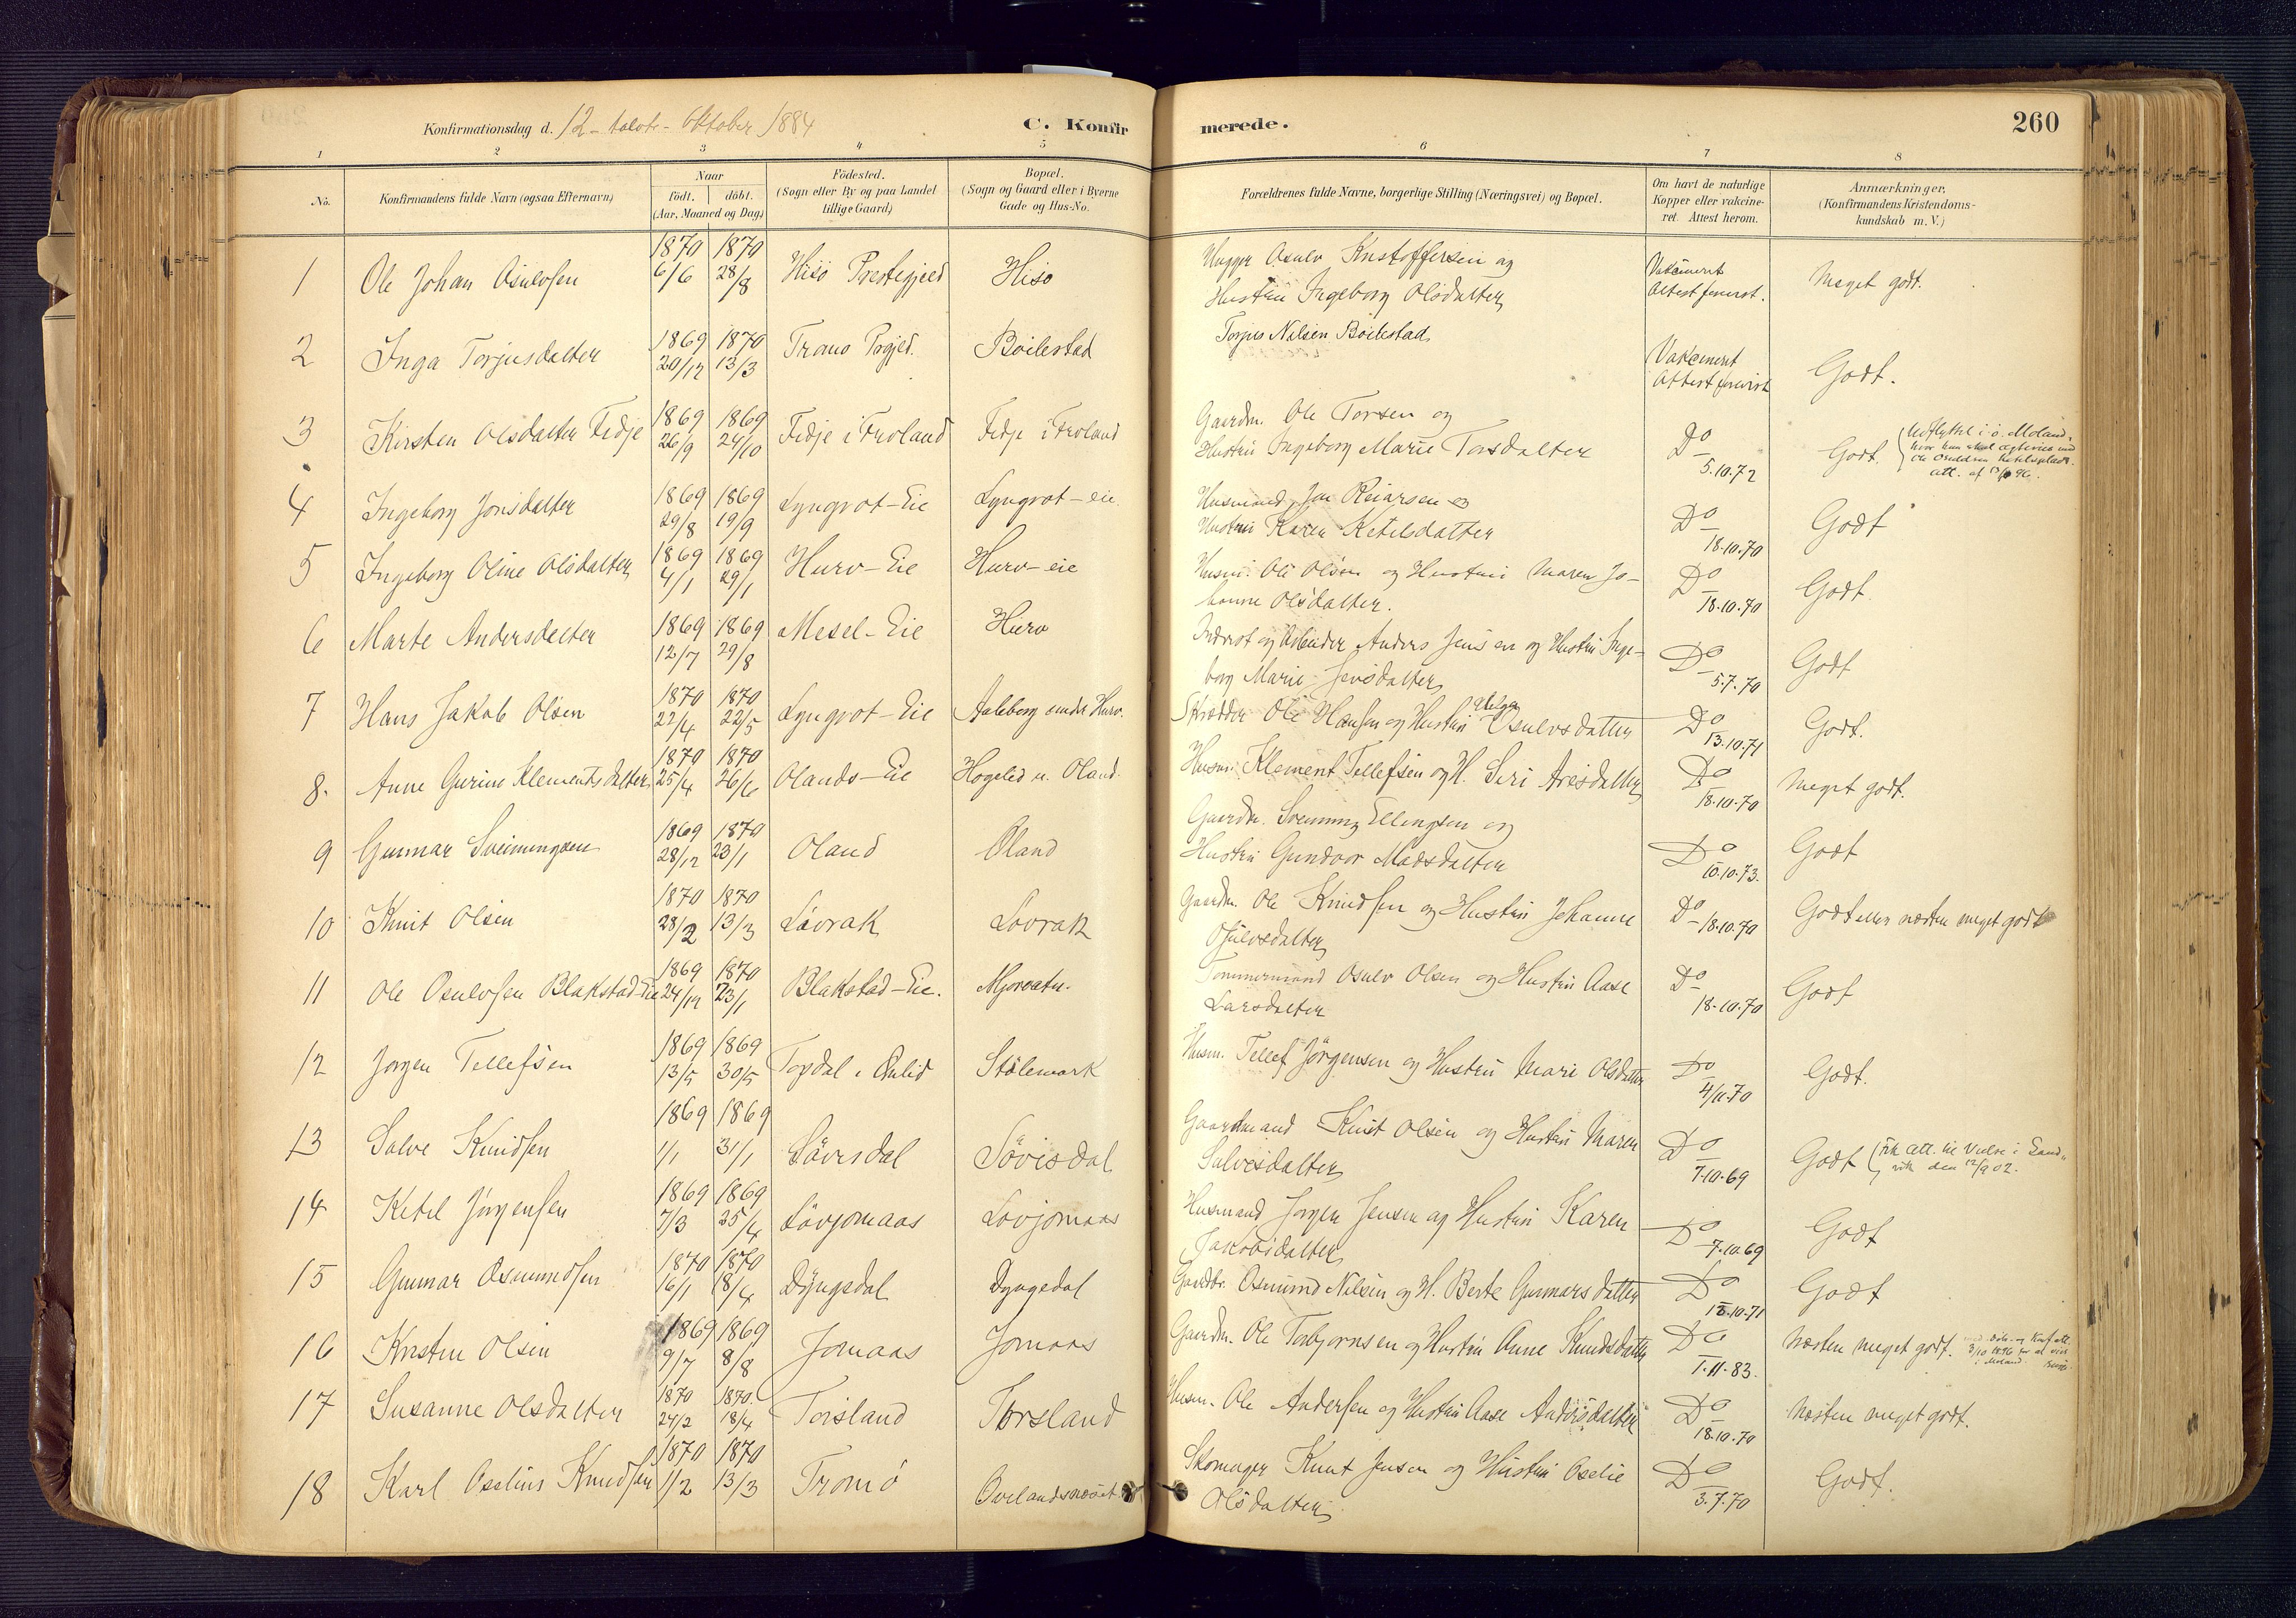 Konfirmationsdag d. 12- tolvte- Oktober 1884
C. Konfir
merede.
260
1 2 3 4 5 6 7 8
No.
Konfirmandens fulde Navn (ogsaa Efternavn)
Naar
födt. döbt.
(Aar, Maaned og Dag)
Födested.
(Sogn eller By og paa Landet
tillige Gaard)
Bopæl.
(Sogn og Gaard eller i Byerne
Gade og Hus-No.
Forældrenes fulde Navne, borgerlige Stilling (Næringsvei) og Bopæl.
Om havt de naturlige
Kopper eller vakcine-
ret. Attest herom.
Anmærkninger.
(Konfirmandens Kristendoms-
kundskab m. V.)
1 Ole Johan Osulvsen 1870 6/6 1870 28/8 Hisö Prestegjeld Hisö
Osulv Kristoffersen og
Hustru Ingeborg Olsdatter
Vakcineret
Attest forevist. Meget godt.
2 Inga Terjusdatter 1869 20/12 1870 13/3 Tromö Prgjed. Böilestad
Torjus Nilsen Böilestad
Vakcineret
Attest forevist Godt.
3 Kirsten Olsdatter Fedje 1869 26/9 1869 24/10 Fedje i Froland Fedje i Froland
Gaardm. Ole Torsen og
Hustru Ingeborg Marie Torsdatter
Do 5.10.72 Godt. Udflyttet i ö. Moland,
4 Ingeborg Jonsdatter 1869 29/8 1869 19/9 Lyngrot-Eie Lyngrot-eie
Husmand Jon Reiarsen og
Hustru Karen Ketelsdatter
Do 18.10.70 Godt
5 Ingeborg Oline Olsdatter 1869 4/1 1869 29/1 Hurv-Eie Hurv-eie
Husm. Ole Olsen og Hustru Maren Jo-
hanne Olsdatter.
Do 18.10.70 Godt
6 Marte Andersdatter 1869 12/7 1869 29/8 Mesel-Eie Hurv
Inderst og Arbeider Anders Jensen og Hustru Inge-
borg Marie Jensdatter
Do 5.7.70 Godt
7 Hans Jakob Olsen 1870 22/4 1870 22/5 Lyngrot-Eie Aaleborg under Hurv.
Skrædder Ole Hansen og Hustru Helga Osulvsdatter
Do 13.10.71 Godt.
8. Anne Gurine Klementsdatter 1870 25/4 1870 26/6 Olands-Eie Hogelid u. Oland.
Husm. Klement Tellefsen og H. Siri Aresdatter
Do 18.10.70 Meget godt.
9 Gunnar Sveinungsen 1869 28/12 1870 23/1 Oland Oland
Gaardm. Sveinung Ellingsen og
Hustru Gundvor Madsdatter
Do 10.10.73. Godt
10 Knut Olsen 1870 28/2 1870 13/3 Lövrak Lovrak
Gaardm. Ole Knudsen og Hustru Johanne
Osulvsdatter
Do 18.10.70 Godt eller næsten meget godt
11 Ole Osulvsen Blakstad-Eie 1869 24/12 1870 23/1 Blakstad-Eie. Mjorvatn.
Tommermand Osulv Olsen og Hustru Aase
Larsdatter
Do 18.10.70 Godt
12 Jorgen Tellefsen 1869 13/5 1869 30/5 Topdal i Östlid Stölemark
Husm. Tellef Jörgensen og Hustru Mari Olsdatter
Do 4/11.70 Godt.
13 Salve Knudsen 1869 1/1 1869 31/1 Sövisdal Sövisdal
Gaardmand Knut Olsen og Hustru Maren
Salvesdatter
Do 7.10.69 Godt
14 Ketel Jörgensen 1869 7/3 1869 25/4 Lövjomaas Lovjomaas
Husmand Jorgen Jensen og Hustru Karen
Jakobsdatter
Do 7.10.69 Godt
15 Gunnar Osmundsen 1870 16/1 1870 18/4 Dyngsdal Dyngedal
Gaardbr. Osmund Nilsen og H. Berte Gunnarsdatter
Do 18.10.71 Godt
16 Kristen Olsen 1869 9/7 1869 8/8 Jomaas Jomaas
Gaardm. Ole Torbjornsen og Hustru Anne Knudsdatter
Do 1.11.83. Næsten meget godt.
17 Susanne Olsdatter 1870 24/2 1870. 18/4 Torsland Torsland
Husm. Ole Andersen og Hustru Aase Andersdatter
Do 18.10.70 Næsten meget godt.
18 Karl Oselius Knudsen 1870 1/2 1870 13/3 Tromö Ovelandsmoset
Skomager Knut Jensen og Hustru Oselie
Olsdatter
Do 3.7.70 Godt.